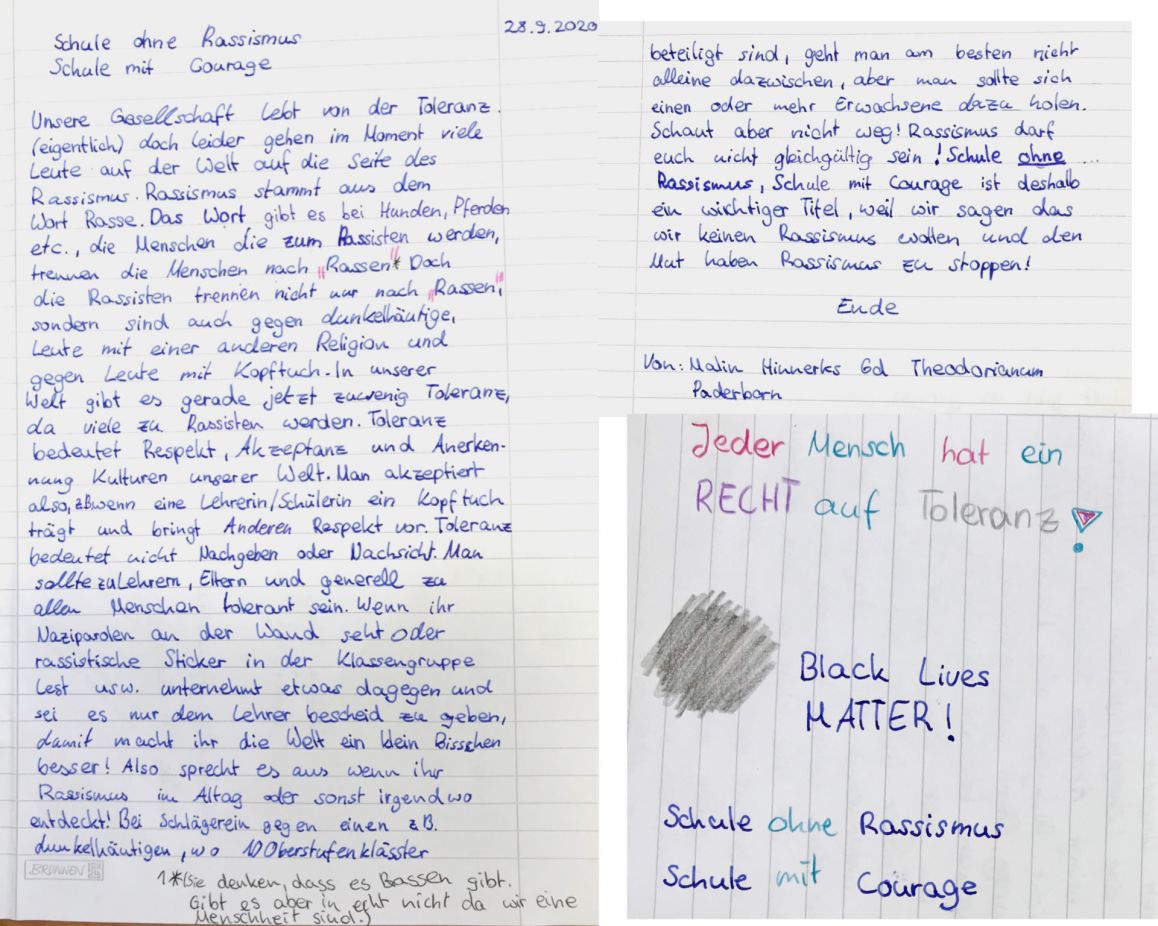 28.9.2020
Schule ohne Rassismus
Schule mit Courage
Unsere Gesellschaft lebt von der Toleranz.
(eigentlich) doch leider gehen im Moment viele
Leute auf der Welt auf die Seite des
Rassismus. Rassismus stammt aus dem
Wort Rasse. Das Wort gibt es bei Hunden, Pferden
etc., die Menschen die zum Rassisten werden,
trennen die Menschen nach "Rassen"* Doch
die Rassisten trennen nicht nur nach "Rassen",
sondern sind auch gegen dunkelhäutige,
Leute mit einer anderen Religion und
gegen Leute mit Kopftuch. In unserer
Welt gibt es gerade jetzt zuwenig Toleranz,
da viele zu Rassisten werden. Toleranz
bedeutet Respekt, Akzeptanz und Anerken-
nung Kulturen unserer Welt. Man akzeptiert
also, zB wenn eine Lehrerin/Schülerin ein Kopftuch
trägt und bringt Anderen Respekt vor. Toleranz
bedeutet nicht Nachgeben oder Nachsicht. Man
sollte zu Lehrern, Eltern und generell zu
allen Menschen tolerant sein. Wenn ihr
Naziparolen an der Wand seht oder
rassistische Sticker in der Klassengruppe
lest usw. unternehmt etwas dagegen und
sei es nur dem Lehrer bescheid zu geben,
damit macht ihr die Welt ein klein Bisschen
besser! Also sprecht es aus wenn ihr
Rassismus im Altag oder sonst irgendwo
entdeckt! Bei Schlägerein gegen einen z.B.
dunkelhäutigen, wo 10 Oberstufenklässter
BRUNNEN
1*(Sie denken, dass es Rassen gibt.
Gibt es aber in echt nicht da wir eine
Menschheit sind.)
beteiligt sind, geht man am besten nicht
alleine dazwischen, aber man sollte sich
einen oder mehr Erwachsene dazu holen.
Schaut aber nicht weg! Rassismus darf
euch nicht gleichgültig sein! Schule ohne ...
Rassismus, Schule mit Courage ist deshalb
ein wichtiger Titel, weil wir sagen das
wir keinen Rassismus wollen und den
Mut haben Rassismus zu stoppen!
Ende
Von: Malin Hinnerks 6d Theodorianum
Paderborn
Jeder Mensch hat ein
RECHT auf Toleranz!
Black Lives
MATTER!
Schule ohne Rassismus
Schule mit Courage